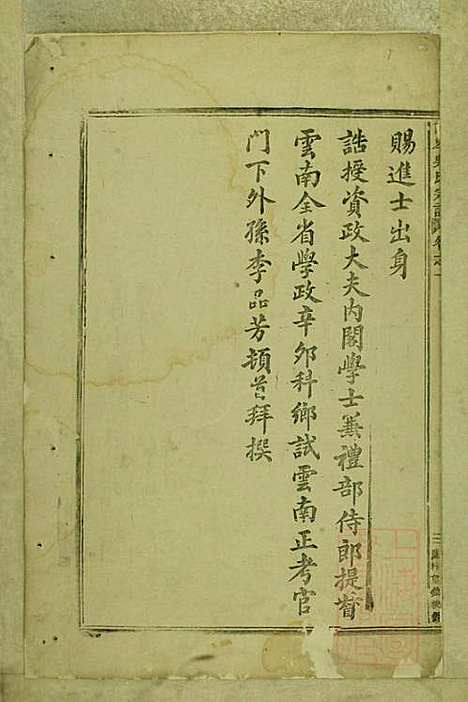 賜進士出身
誥授資政大夫內閣學士兼禮部侍郎提督
雲南全省學政辛夘科鄉試雲南正考官
門下外孫李品芳頓首拜撰